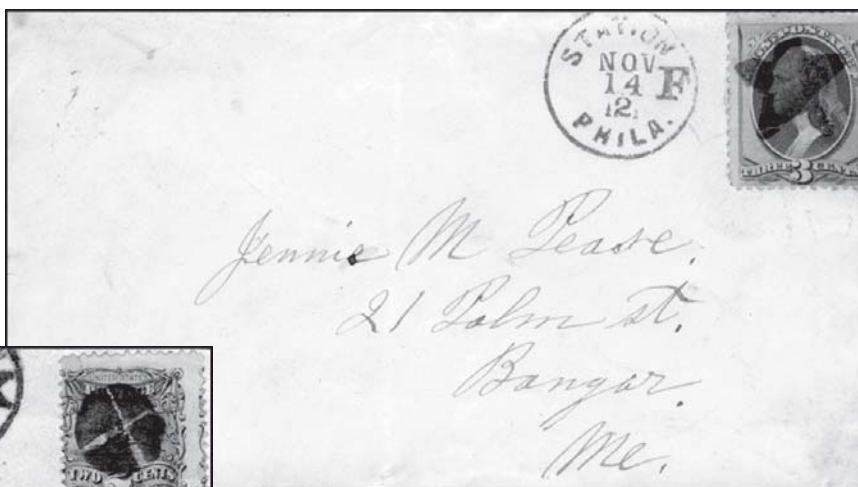 STATION
NOV
14 F
12
PHILA.
THREE 3 CENTS
Jennie M Pease.
21 Palm st.
Bangor.
Me.
UNITED STATES
TWO CENTS